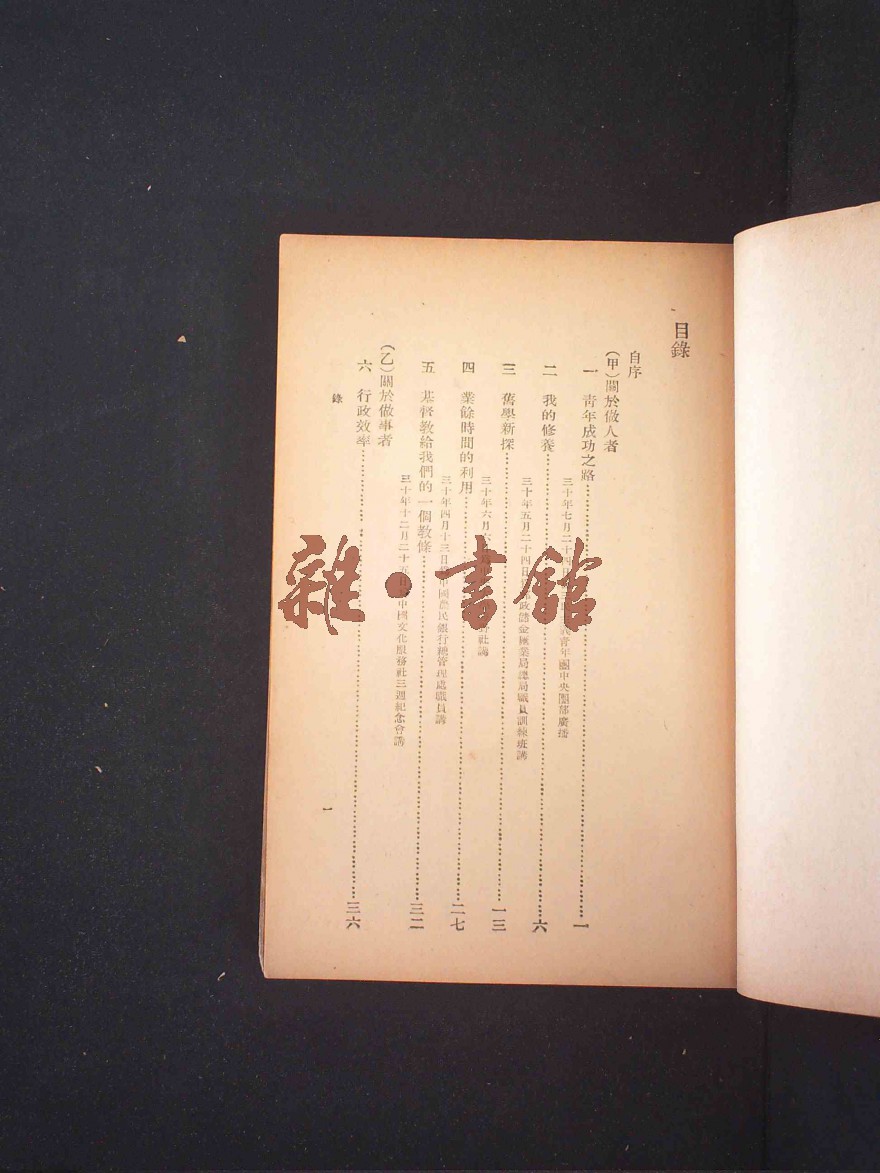 目錄
自序
(甲)關於做人者
一 靑年成功之路……一
三十年七月二十四日 靑年團中央團部廣播
二 我的修養……六
三十年五月二十四日 政儲金匯業局總局職員訓練班講
三 舊學新探……一三
三十年六月 社講
四 業餘時間的利用……二七
三十年四月十三日 中國農民銀行總管理處職員講
五 基督敎給我們的一個敎條……三二
三十年十二月二十五日 中國文化服務社三週紀念會講
(乙)關於做事者
六 行政效率……三六
錄
一
雜·書館